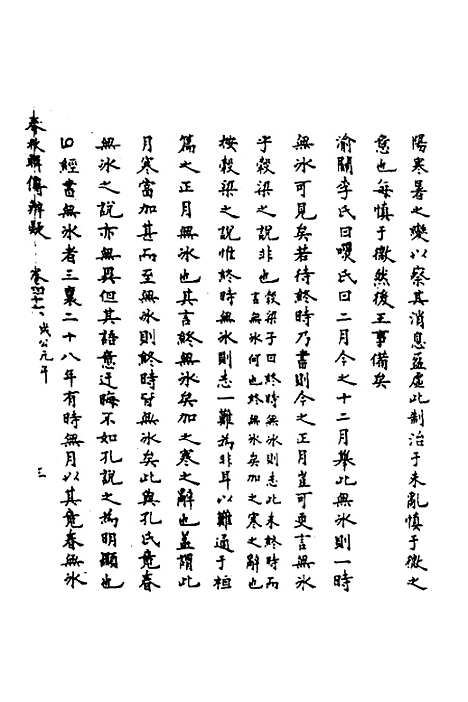 陽寒暑之變以察其消息盈虛此制治于未亂慎于微之
意也每慎于微然後王事備矣
渝關李氏曰啖氏曰二月今之十二月舉此無冰則一時
無冰可見矣若待終時乃書則今之正月豈可更言無冰
乎穀梁之說非也穀梁子曰終時無冰則志此未終時而
言無冰何也終無冰矣加之寒之辭也
按穀梁之說惟終時無冰則志一難為非耳以難通于桓
篇之正月無冰也其言終無冰矣加之寒之辭也蓋謂此
月寒當加甚而至無冰則終時皆無冰矣此與孔氏竟春
無冰之說亦無異但其語意迂晦不如孔說之為明顯也
曰經書無冰者三襄二十八年有時無月以其竟春無冰
春秋輯傳辨疑 卷四十八 成公元年 三